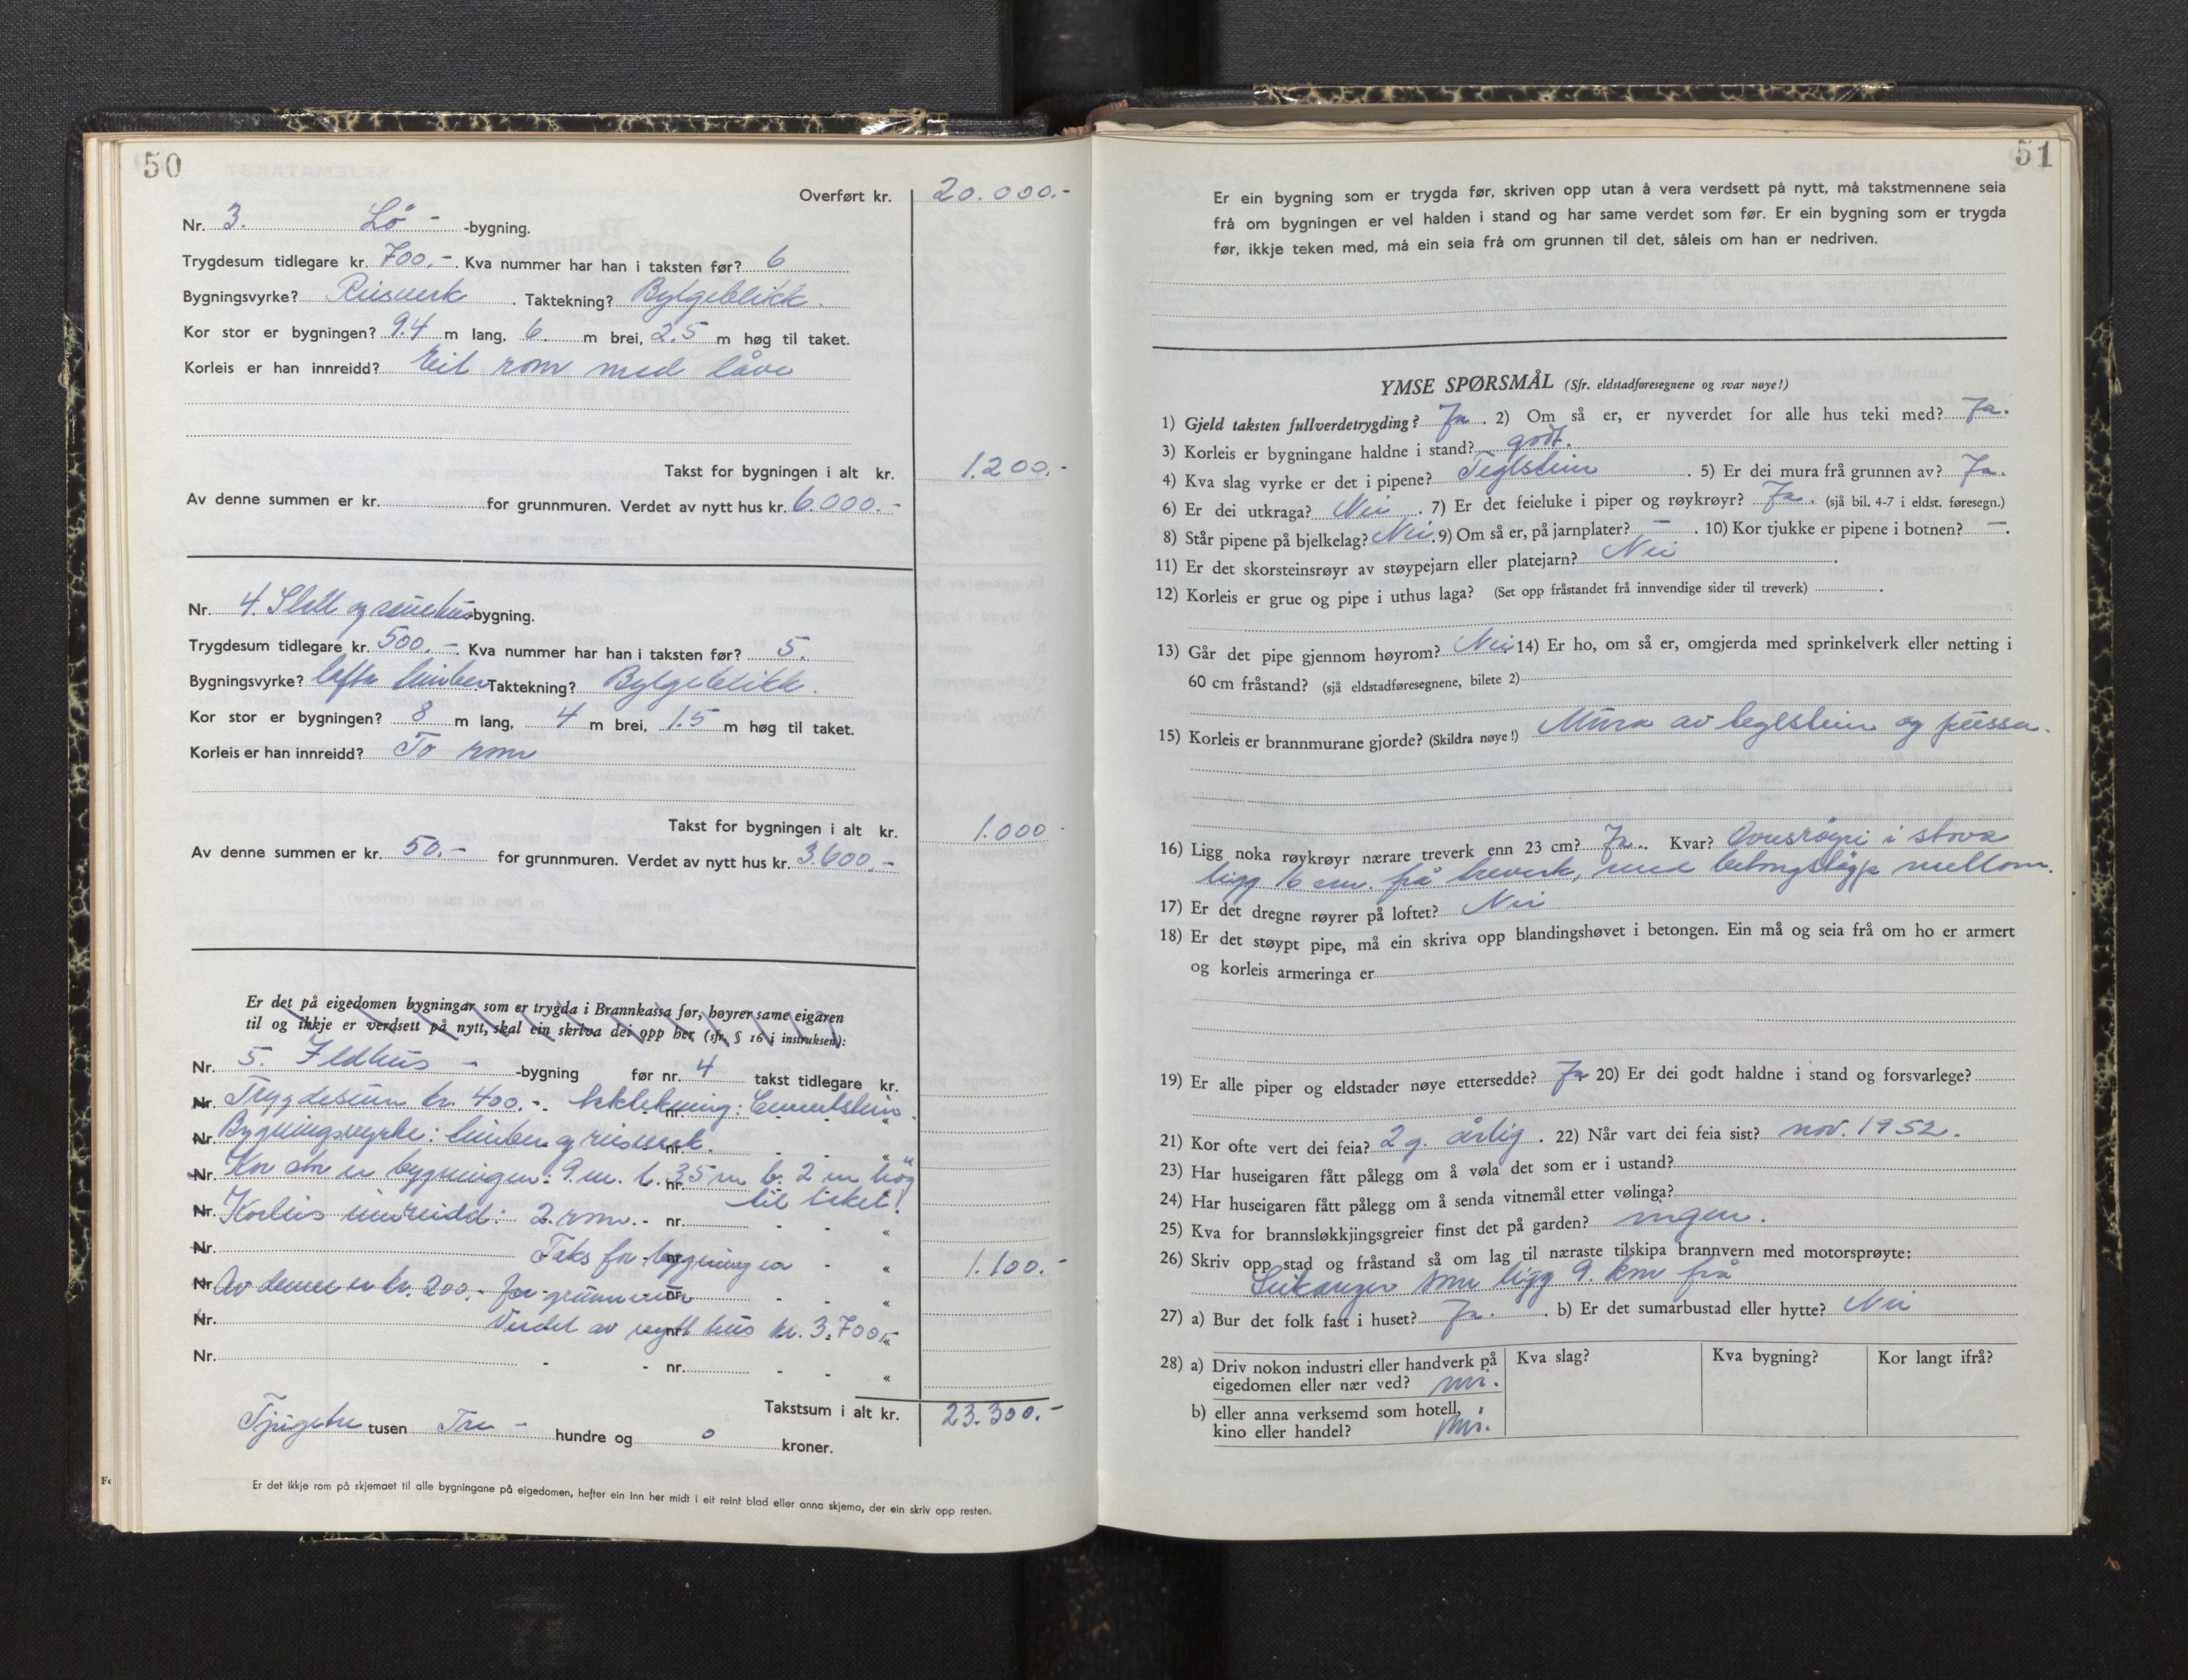 50
Overført kr. 20.000.-
Nr. 3. Lö - -bygning.
Trygdesum tidlegare kr. 700.- . Kva nummer har han i taksten før? 6
Bygningsvyrke? Reisverk . Taktekning? Bylgeblikk.
Kor stor er bygningen? 9.4 m lang, 6. m brei, 2.5 m høg til taket.
Korleis er han innreidd? Eit rom med låve
Takst for bygningen i alt kr. 1.200.-
Av denne summen er kr. for grunnmuren. Verdet av nytt hus kr. 6.000.-
Nr. 4. -bygning.
Trygdesum tidlegare kr. 500.- . Kva nummer har han i taksten før? 5.
Bygningsvyrke? lafta timber Taktekning? Bylgeblikk.
Kor stor er bygningen? 8 m lang, 4 m brei, 1.5 m høg til taket.
Korleis er han innreidd? To rom
Takst for bygningen i alt kr. 1.000
Av denne summen er kr. 50.- for grunnmuren. Verdet av nytt hus kr. 3.600.-
Er det på eigedomen bygningar som er trygda i Brannkassa før, høyrer same eigaren
til og ikkje er verdsett på nytt, skal ein skriva dei opp her (sfr. § 16 i instruksen):
Nr. 5. Ildhus - -bygning før nr. 4 takst tidlegare kr.
Nr. Trygdesum kr. 400.-. taktekning: Cementstein. nr. - - «
Nr. Bygningsvyrke: timber og reisverk. nr. - - «
Nr. Kor stor er bygningen: 9 m. l. 3.5 m b. 2 m høg nr.
til taket!
Nr. Korleis innreidd: 2 rom. - nr. - - «
Nr. Taks for bygningen nr. - « 1.100.-
Nr. Av denne er kr. 200.- for grunnmur nr. - - «
Nr. Verdet av nytt hus kr. 3.700,- nr. «
Nr. - - nr. - - «
Takstsum i alt kr. 23.300.-
Tjugetre tusen Tre - hundre og 0 kroner.
Er det ikkje rom på skjemaet til alle bygningane på eigedomen, hefter ein inn her midt i eit reint blad eller anna skjema, der ein skriv opp resten.
51
Er ein bygning som er trygda før, skriven opp utan å vera verdsett på nytt, må takstmennene seia
frå om bygningen er vel halden i stand og har same verdet som før. Er ein bygning som er trygda
før, ikkje teken med, må ein seia frå om grunnen til det, såleis om han er nedriven.
YMSE SPØRSMÅL (Sfr. eldstadføresegnene og svar nøye!)
1) Gjeld taksten fullverdetrygding? Ja . 2) Om så er, er nyverdet for alle hus teki med? Ja.
3) Korleis er bygningane haldne i stand? godt.
4) Kva slag vyrke er det i pipene? Teglstein . 5) Er dei mura frå grunnen av? Ja.
6) Er dei utkraga? Nei . 7) Er det feieluke i piper og røykrøyr? Ja . (sjå bil. 4-7 i eldst. føresegn.)
8) Står pipene på bjelkelag? Nei . 9) Om så er, på jarnplater? - . 10) Kor tjukke er pipene i botnen? - .
11) Er det skorsteinsrøyr av støypejarn eller platejarn? Nei .
12) Korleis er grue og pipe i uthus laga? (Set opp fråstandet frå innvendige sider til treverk) .
13) Går det pipe gjennom høyrom? Nei 14) Er ho, om så er, omgjerda med sprinkelverk eller netting i
60 cm fråstand? (sjå eldstadføresegnene, bilete 2)
15) Korleis er brannmurane gjorde? (Skildra nøye!) Mura av teglstein og pussa.
16) Ligg noka røykrøyr nærare treverk enn 23 cm? Ja . Kvar? Ovnsröyri i stova
ligg 16 cm. frå treverk, med mellom.
17) Er det dregne røyrer på loftet? Nei
18) Er det støypt pipe, må ein skriva opp blandingshøvet i betongen. Ein må og seia frå om ho er armert
og korleis armeringa er
19) Er alle piper og eldstader nøye ettersedde? Ja 20) Er dei godt haldne i stand og forsvarlege?
21) Kor ofte vert dei feia? 2 g. årlig . 22) Når vart dei feia sist? nov. 1952.
23) Har huseigaren fått pålegg om å vøla det som er i ustand?
24) Har huseigaren fått pålegg om å senda vitnemål etter vølinga?
25) Kva for brannsløkkjingsgreier finst det på garden? ingen.
26) Skriv opp stad og fråstand så om lag til næraste tilskipa brannvern med motorsprøyte:
Leikanger som ligg 9. km frå
27) a) Bur det folk fast i huset? Ja. . b) Er det sumarbustad eller hytte? Nei
28) a) Driv nokon industri eller handverk på
eigedomen eller nær ved? nei.
Kva slag? Kva bygning? Kor langt ifrå?
b) eller anna verksemd som hotell,
kino eller handel? nei.